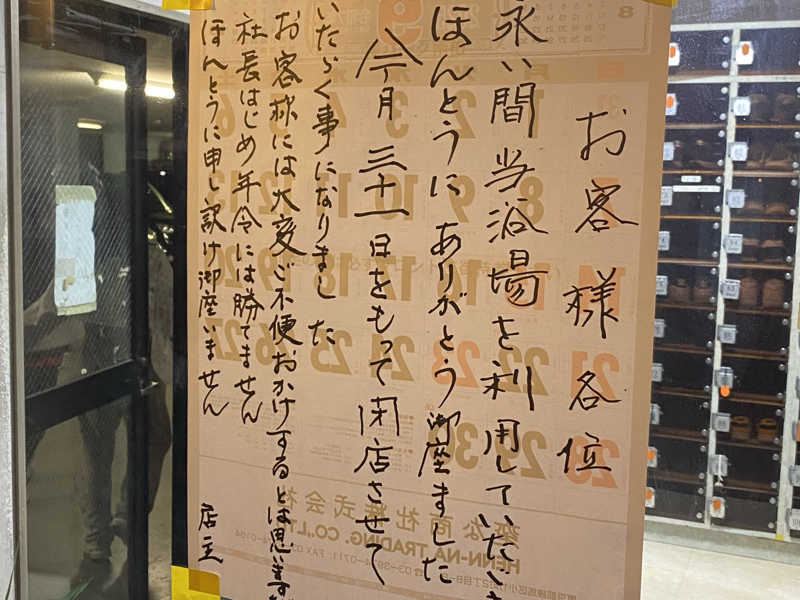 お客様各位
永い間当浴場を利用していただき
ほんとうにありがとう御座ました
今月三十一日をもって閉店させて
いただく事になりました
お客様には大変ご不便おかけするとは思います
社長はじめ年令には勝てません
ほんとうに申し訳け御座いません
店主